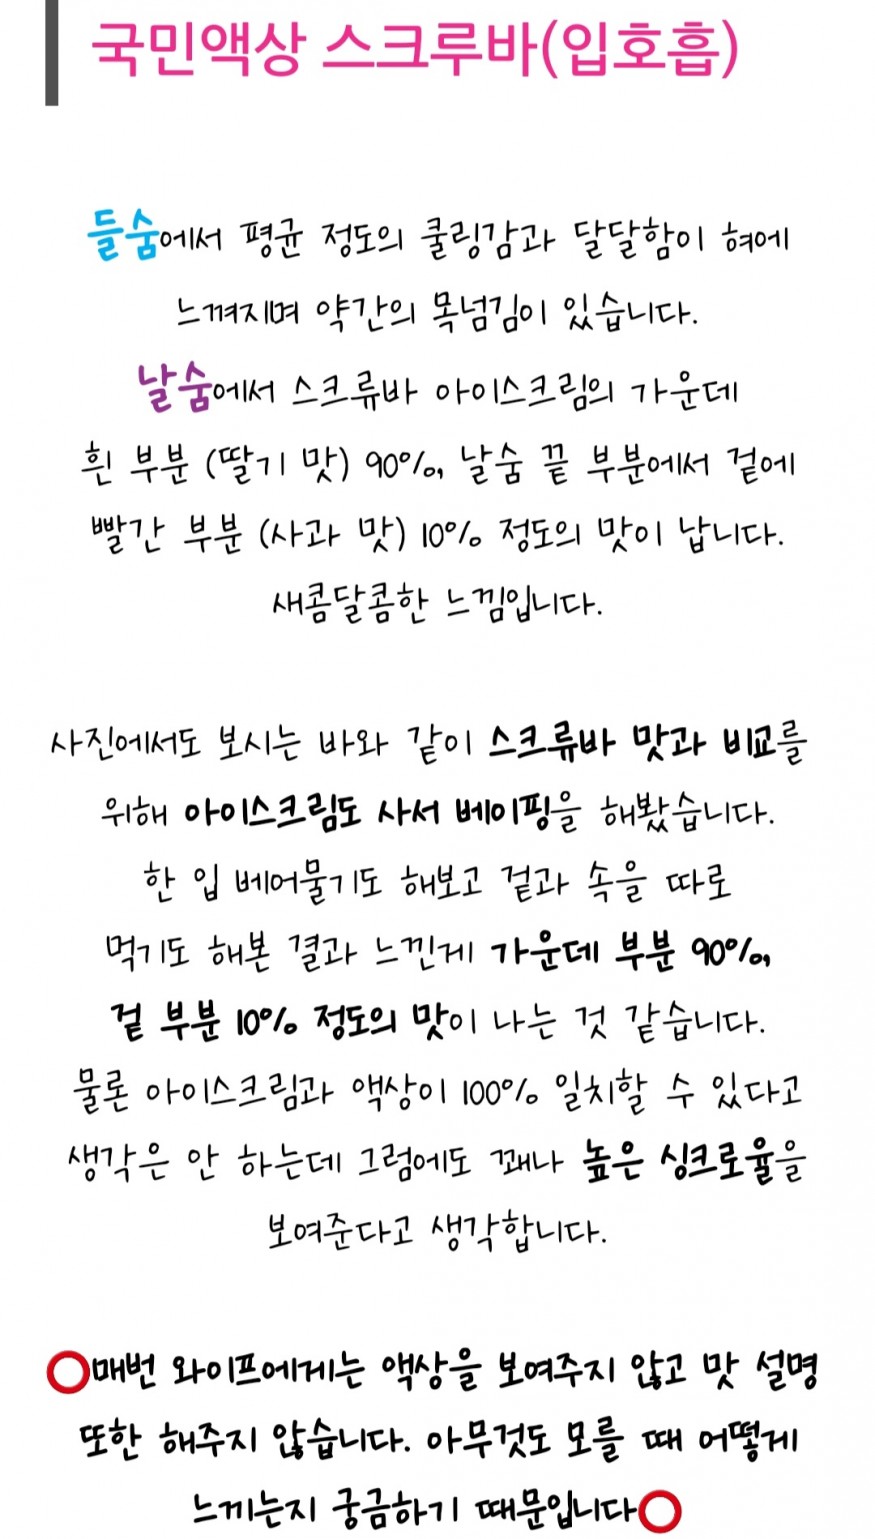 국민액상 스크루바(입호흡)
들숨에서 평균 정도의 쿨링감과 달달함이 혀에
느껴지며 약간의 목넘김이 있습니다.
날숨에서 스크류바 아이스크림의 가운데
흰 부분 (딸기 맛) 90%, 날숨 끝 부분에서 겉에
빨간 부분 (사과 맛) 10% 정도의 맛이 납니다.
새콤달콤한 느낌입니다.
사진에서도 보시는 바와 같이 스크류바 맛과 비교를
위해 아이스크림도 사서 베이핑을 해봤습니다.
한 입 베어물기도 해보고 겉과 속을 따로
먹기도 해본 결과 느낀게 가운데 부분 90%,
겉 부분 10% 정도의 맛이 나는 것 같습니다.
물론 아이스크림과 액상이 100% 일치할 수 있다고
생각은 안 하는데 그럼에도 꽤나 높은 싱크로율을
보여준다고 생각합니다.
⭕매번 와이프에게는 액상을 보여주지 않고 맛 설명
또한 해주지 않습니다. 아무것도 모를 때 어떻게
느끼는지 궁금하기 때문입니다⭕